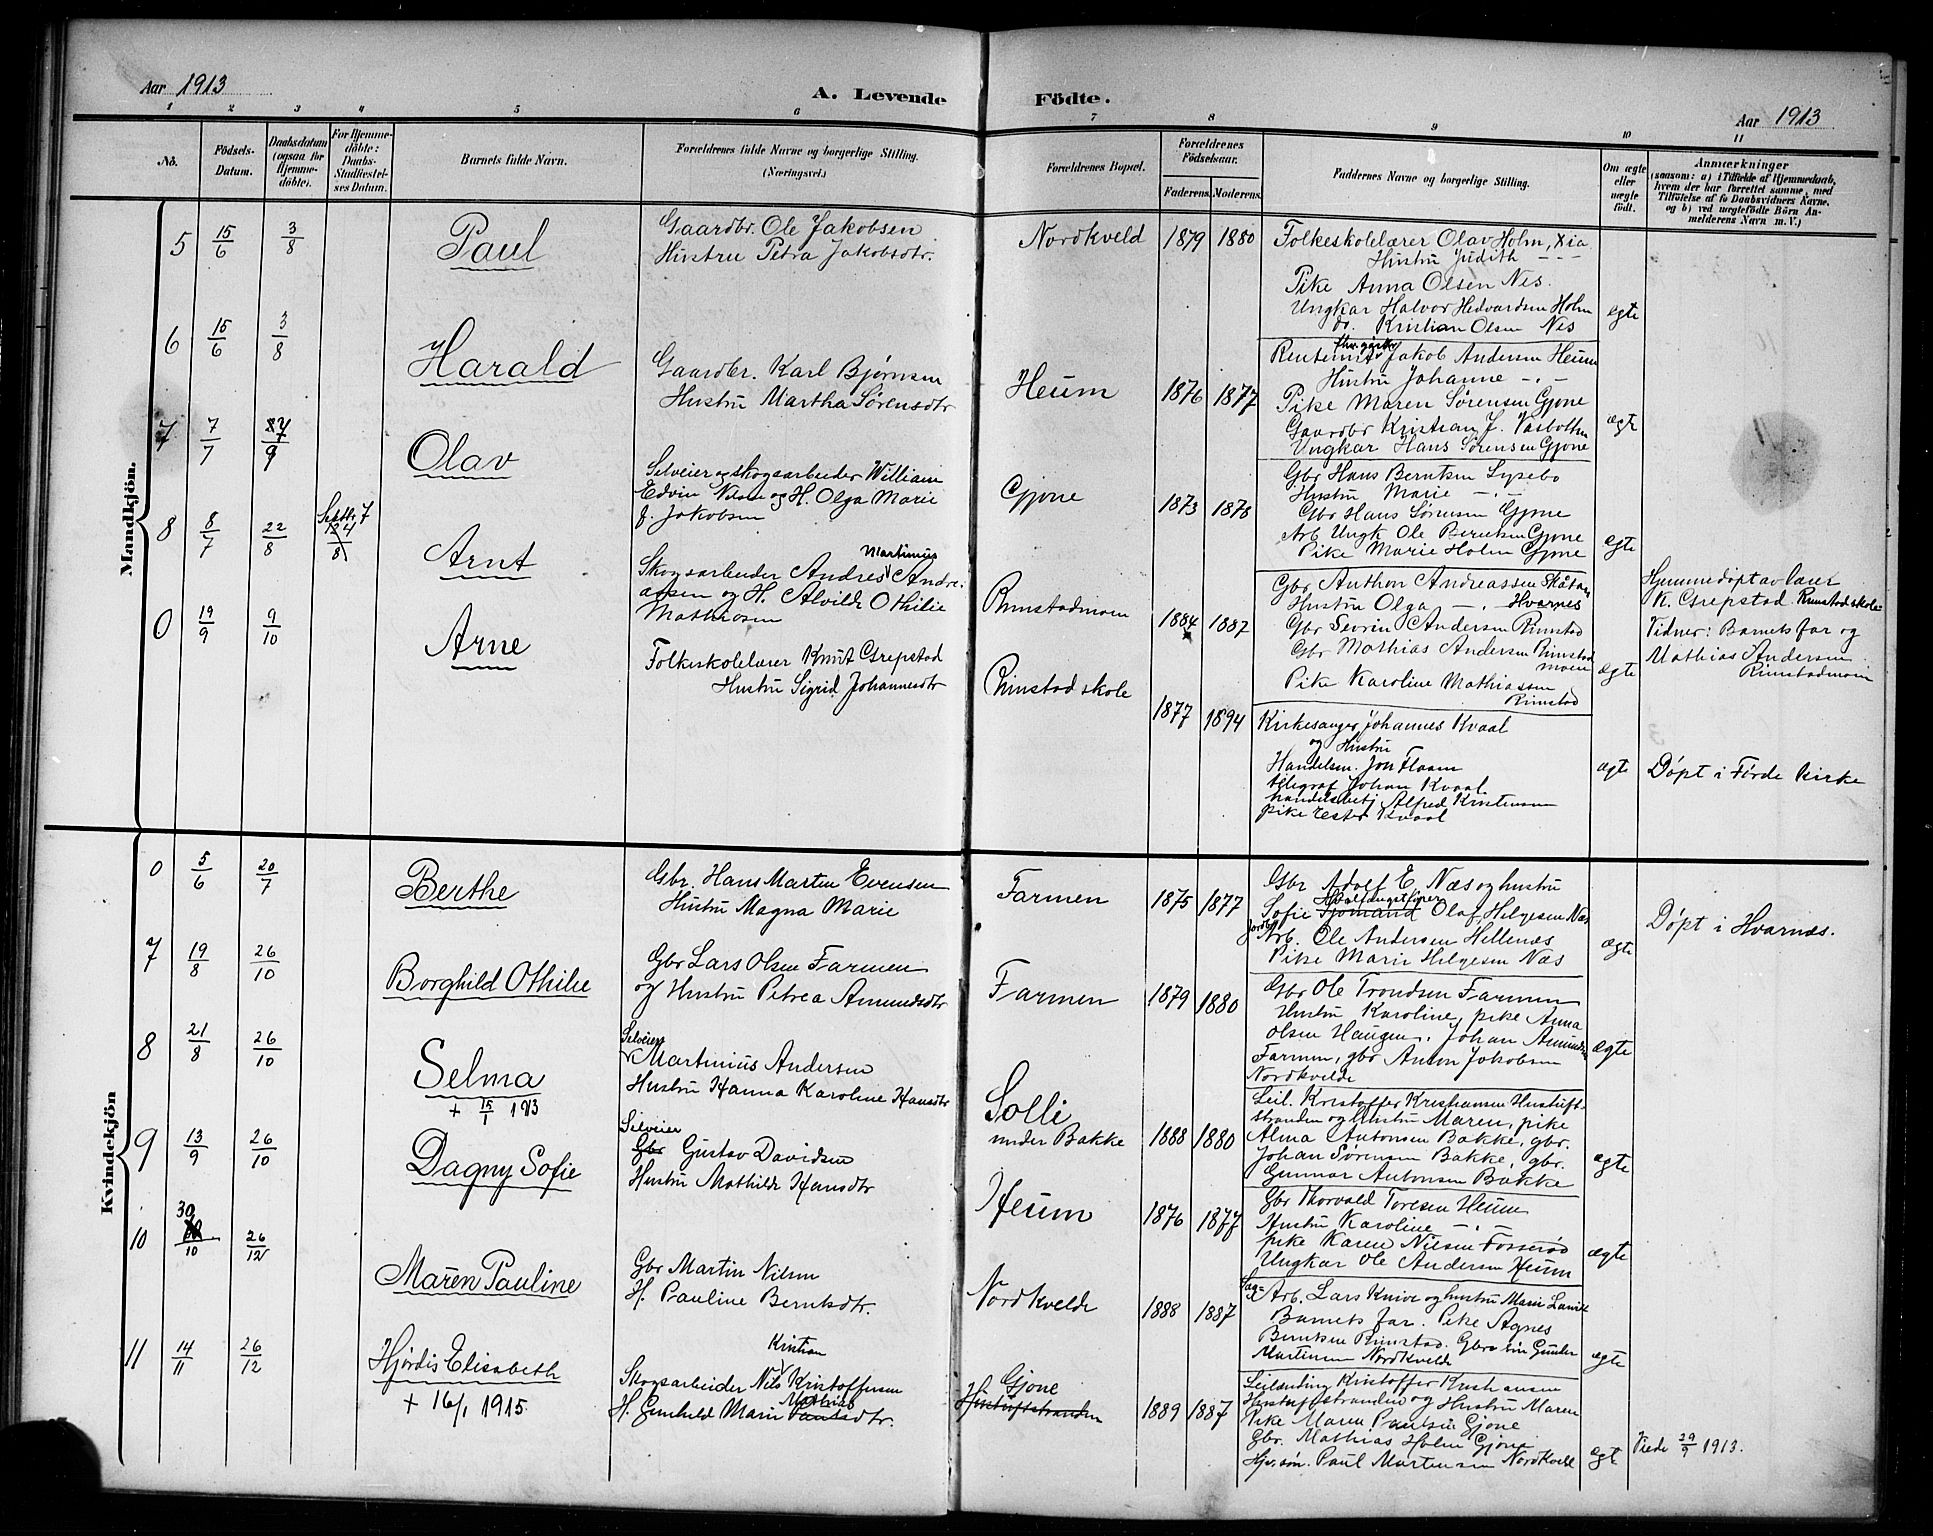 Aar 1913
A. Levende Födte.
Aar 1913
1 2 3 4 5 6 7 8 9 10 11
No.
Födsels-Datum.
Daabsdatum (ogsaa for Hjemmedöbte).
For Hjemmedöbte: Daabs-Stadfæstelsesdatum.
Barnets fulde Navn.
Forældrenes fulde Navne og borgerlige Stilling.
(Næringsvei.)
Forældrenes Bopæl.
Forældrenes Födselsaar.
Faderens. Moderens.
Faddernes Navne og borgerlige Stilling.
Om ægte eller uægte født.
Anmærkninger
(saasom: a) i Tilfælde af Hjemmedaab,
hvem der har forrettet samme, med
Tilföielse af to Daabsvidners Navne.
og b) ved uægtefödte Börn An-
melderens Navn m. V.)
Mandkjön.
5 15/6 3/8 Paul
Gaardbr. Ole Jakobsen
Hustru Petra Jakobsdtr.
Nordkveld 1879 1880
Folkeskolelærer Olav Holm,
Hustru Judith - - -
Pike Anna Olsen Nes.
Ungkar Halvor Hedvardsen Holm
do. Kristian Olsen Nes
egte
6 15/6 3/8 Harald
Gaardbr. Karl Bjørnsen
Hustru Martha Sørensdtr
Heum 1876 1877
Jakob Andersen Heum
Hustru Johanne - . -
Pike Maren Sørensen Gjone
Gaardbr Kristian J. Vasbotten
Ungkar Hans Sørensen Gjone
ægt
7 7/7 Olav
Selveier og skogsarbeider William
Edvin Nilsen og H. Olga Marie
f. Jakobsen
Gjone 1873 1878
Gbr Hans Berntsen Lysebo
Hustru Marie - . -
Gbr Hans Sørensen Gjone
Arb Ungk Ole Berntsen Gjone
Pike Marie Holm Gjone
egte
8 8/7 22/8 Septbr 7 Arnt
Martinius
Skogsarbeider Andres Andre-
assen og H. Alvilde Othilie
Mathiasen
Rimstadmoen 1884 1887
Gbr Anthon Andreassen
Hustru Olga - . Hvarnes
Gbr Severin Andersen Rimstad
Gbr Mathias Andersen Rimstad
moen
Pike Karoline Mathiassen
Rimstad
ægte
Hjemmedøpt av lærer
K. Grepstad Rimstad skole
Vidner: Barnets far og
Mathias Andersen
Rimstadmoen
0 19/9 9/10 Arne
Folkeskolelærer Knut Grepstad
Hustru Sigrid Johannesdtr
Rimstad skole 1877 1894
Kirkesanger Johannes Kvaal
og Hustru
Handelsm. Jon Flaam
telegraf Johan Kvaal
handelsbetj Alfred Kristensen
pike Ester Kvaal
ægte
Døpt i Førde kirke
Kvindekjön
0 5/6 20/7 Berthe
Gbr. Hans Martin Evensen
Hustru Magna Marie
Farmen 1875 1877
Gbr Adolf E. Næs og hustru
Hvalfangstfyrer
Sofie Sjømand Olaf Helgesen Næs
Jordbr Arb. Ole Andersen Hellenæs
Pike Marie Helgesen Næs
ægte
Døpt i Hvarnæs.
7 19/8 26/10 Borghild Othilie
Gbr Lars Olsen Farmen
og Hustru Petrea Amundsdtr
Farmen 1879 1880
Gbr Ole Trondsen Farmen
Hustru Karoline, pike Anna
Olsen Haugen, Johan Amundsen
Farmen, gbr Anton Jakobsen
Nordkvelde
ægte
8 21/8 26/10 Selma
+ 15/1 1913
Selveier
Martinius Andersen
Hustru Hanna Karoline Hansdtr
Solli
under Bakke 1888 1880
Leil. Kristoffer Kristiansen Hustuft-
stranden og hustru Maren, pike
Alma Antonsen Bakke, gbr.
Johan Sørensen Bakke, gbr.
Gunnar Antonsen Bakke
ægte
9 13/9 26/10 Dagny Sofie
Selveier
Gbr Gustav Davidsen
Hustru Mathilde Hansdtr
Heum 1876 1877
Gbr Thorvald Toresen Heum
Hustru Karoline - . -
pike Karen Nilsen Fosserød
Ungkar Ole Andersen Heum
ægte
10 30/10 26/12 Maren Pauline
Gbr Martin Nilsen
H. Pauline Berntsdtr.
Nordkvelde 1888 1887
Sag- Arb. Lars Knive og hustru Marie Larvik
Barnets far. Pike Agnes
Berntsen Rimstad. Gbr Gunder
Martinsen Nordkvelde
ægte
11 14/11 26/12 Hjørdis Elisabeth
+ 16/1 1915.
Kristian
Skogsarbeider Nils Kristoffersen
Mathias
H. Gunhild Marie Paulsdtr.
Gjone
Hustuftstranden 1889 1887
Leilending Kristoffer Kristiansen
Hustuftstranden og Hustru Maren
Pike Maren Paulsen Gjone
Gbr. Mathias Holm Gjone
Gbr.søn. Paul Martinsen Nordkveld
egte
Viede 29/9 1913.